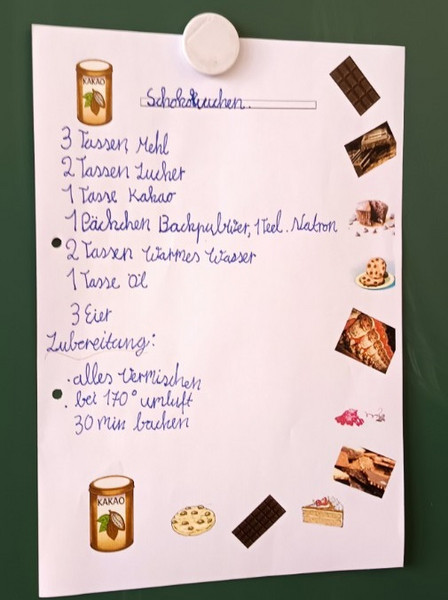 KAKAO
Schokokuchen.
3 Tassen Mehl
2 Tassen Zucker
1 Tasse Kakao
1 Päckchen Backpulver, 1 Teel. Natron
2 Tassen Warmes Wasser
1 Tasse Öl
3 Eier
Zubereitung:
· alles Vermischen
· bei 170° umluft
30 min backen
KAKAO